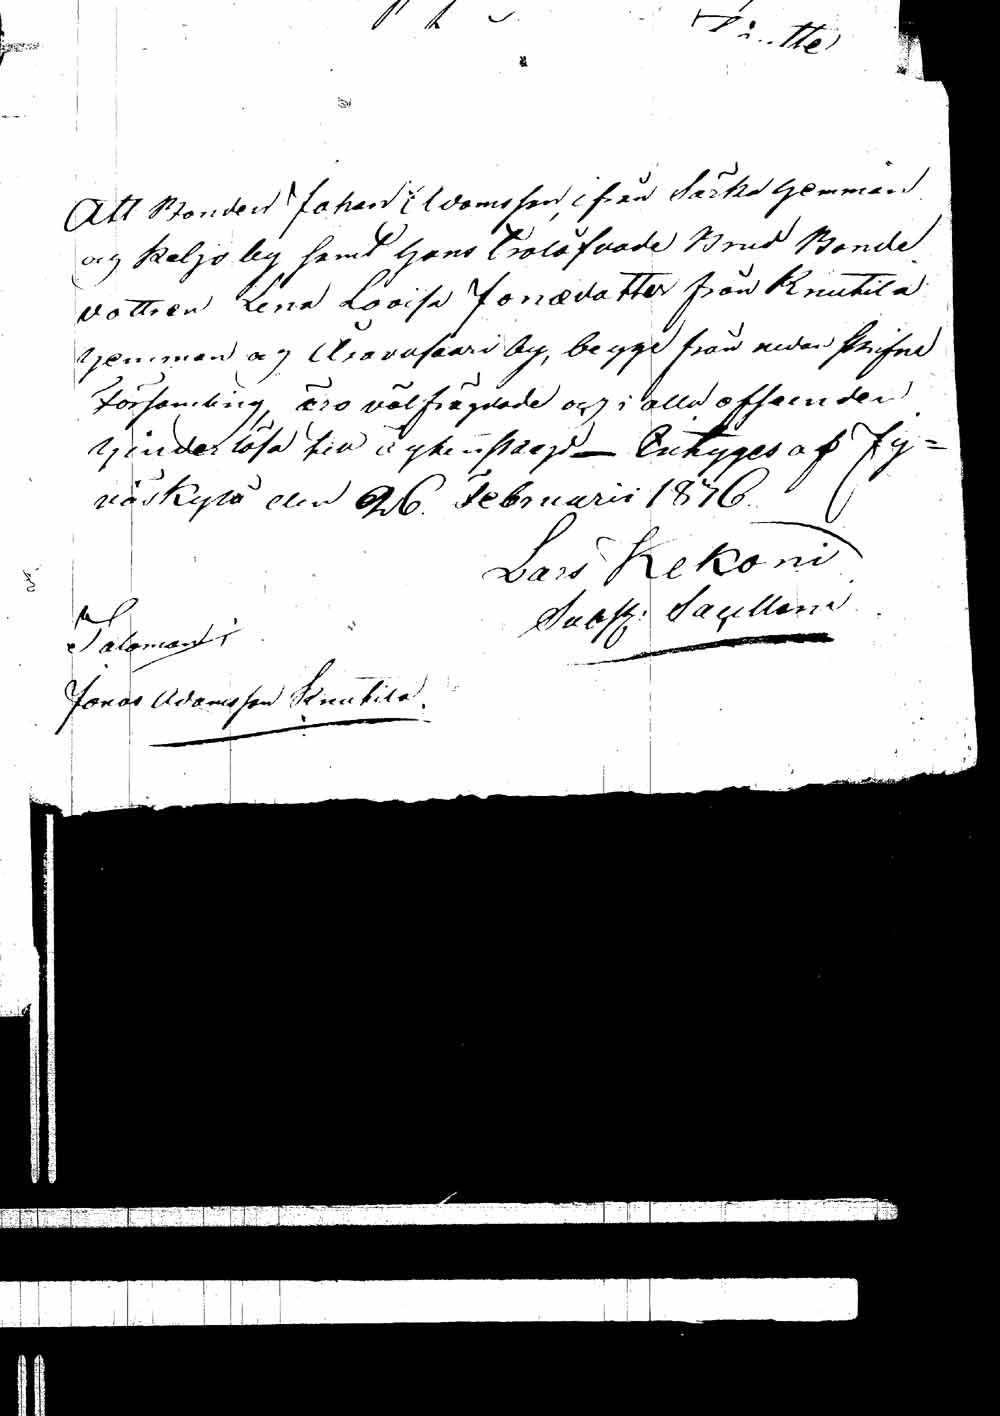 Att Bonden Johan Adamsson, ifrån Särkä hemman
och Keljo by samt hans trolofvade Brud Bonde
dottren Lena Lovisa Jonædotter från Knutila
hemman och Aravasaari by, begge från nedan skrifne
Församling, äro välfrägdade och i alla afseenden
hinderlösa till ägtenskap — Betyges af Jy=
väskylä den 26. Februarii 1876.
Lars Kekoni
Sacellani
Talaman
Jonas Adamsson Knutila.